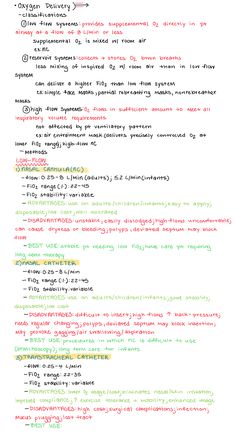 • Oxygen Delivery
- classifications
① low flow systems: provides supplemental O₂ directly in pt
airway at a flow of 8 L/min or less
supplemental O₂ is mixed w/ room air
ex: NC
② reservoir systems: collects + stores O₂ b/wn breaths
less mixing of inspired O₂ w/ room air than in low flow
system
can deliver a higher FiO₂ than low flow system
ex: simple face masks, partial rebreathing masks, nonrebreather
masks
③ high flow systems: O₂ flows in sufficient amount to meet all
inspiratory volume requirements
not affected by pt ventilatory pattern
ex: air entrainment mask (delivers precisely controlled O₂ at
lower FiO₂ range), high-flow NC
- Methods
LOW-FLOW
1) NASAL CANNULA (NC)
- flow: 0.25-8 L/min (adults), ≤ 2 L/min (infants)
- FiO₂ range (%): 22-45
- FiO₂ stability: variable
- ADVANTAGES: use on adults/children/infants, easy to apply,
disposable, low cost, well tolerated
- DISADVANTAGES: unstable, easily dislodged, high flows uncomfortable,
can cause dryness or bleeding, polyps, deviated septum may block
flow
- BEST USE: stable pt needing low FiO₂, home care pt requiring
long term therapy
2) NASAL CATHETER
- flow: 0.25-8 L/min
- FiO₂ range (%): 22-45
- FiO₂ stability: variable
- ADVANTAGES: use on adults/children/infants, good stability,
disposable, low cost
- DISADVANTAGES: difficult to insert, high flows ↑ back-pressure,
needs regular changing, polyps, deviated septum may block insertion,
may provoke gagging/air swallowing/aspiration
- BEST USE: procedures in which NC is difficult to use
(bronchoscopy), long term care for infants
3) TRANSTRACHEAL CATHETER
- flow: 0.25-4 L/min
- FiO₂ range: 22-35
- FiO₂ stability: variable
- ADVANTAGES: lower O₂ usage/cost, eliminates nasal/skin irritation,
improved compliance, ↑ exercise tolerance + mobility, enhanced image
- DISADVANTAGES: high cost, surgical complications, infection,
mucus plugging, lost tract
- BEST USE: